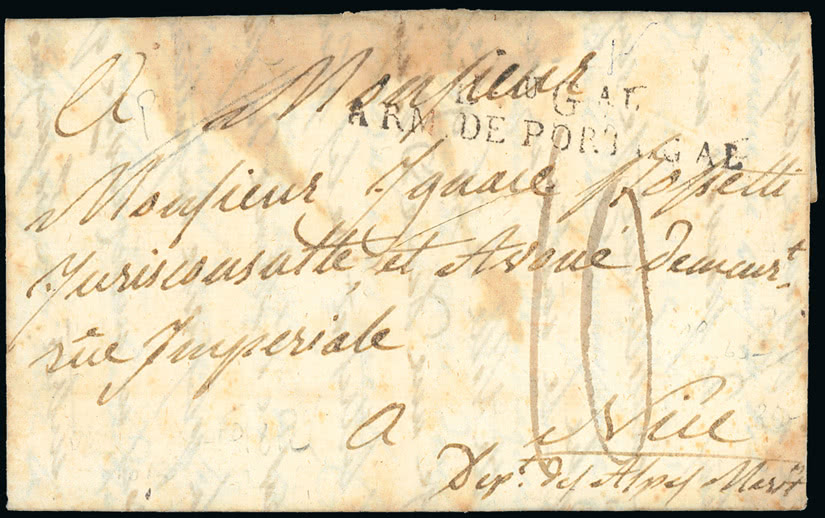 A Monsieur
Nº GAL
ARM. DE PORTUGAL
Monsieur Ignace Rossetti
Jurisconsulte, et Avoué demeurt.
rüe Imperiale
10
a Nice
Dept. des Alpes Maritt